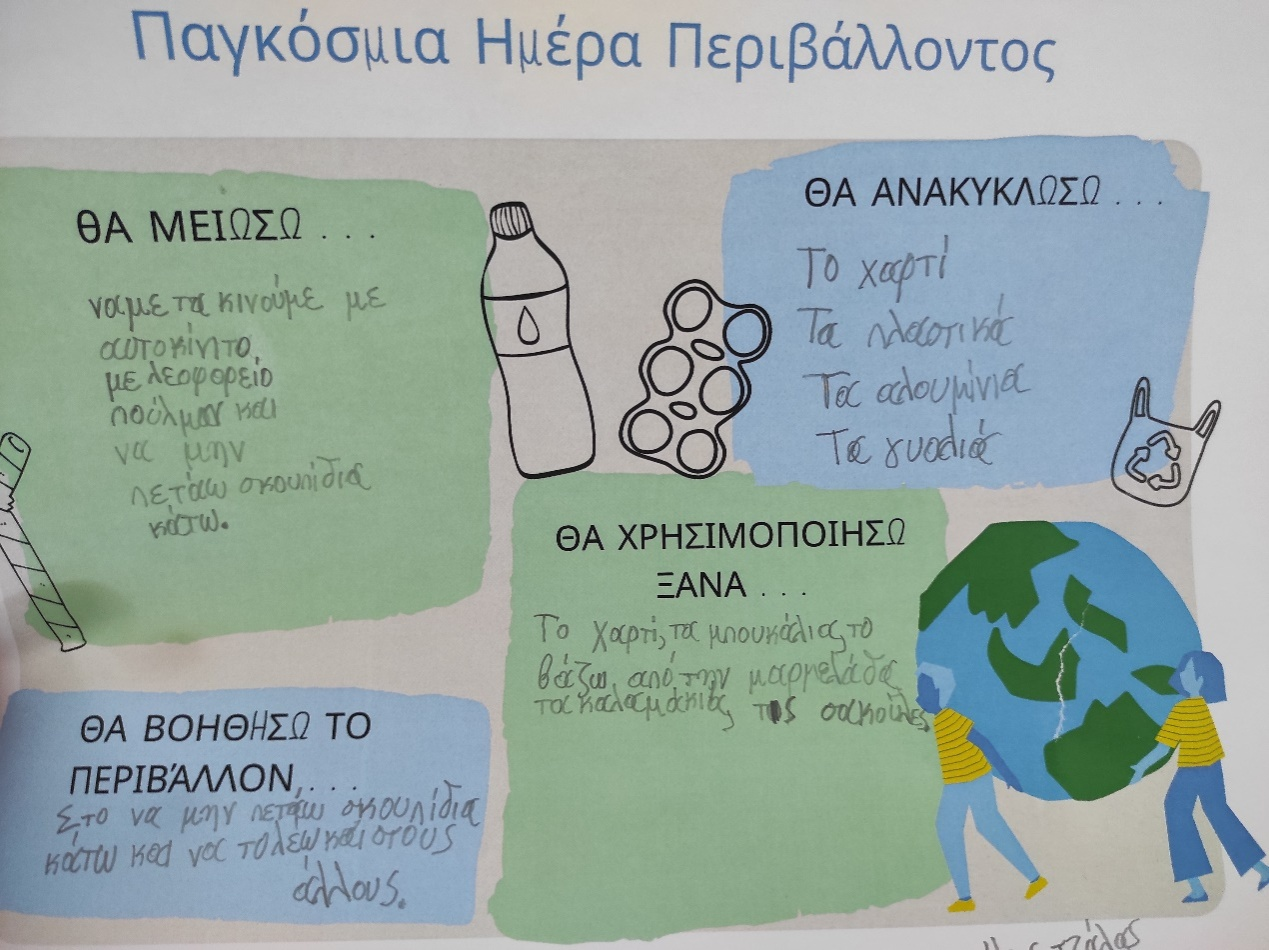 Παγκόσμια Ημέρα Περιβάλλοντος
ΘΑ ΜΕΙΩΣΩ . . .
να με τα κινούμε με
αυτοκίνητο,
με λεοφορείο
πούλμαν και
να μην
πετάω σκουπίδια
κάτω.
ΘΑ ΑΝΑΚΥΚΛΩΣΩ . . .
Το χαρτί
Τα πλαστικά
Τα αλουμίνια
Τα γυαλιά
ΘΑ ΧΡΗΣΙΜΟΠΟΙΗΣΩ
ΞΑΝΑ . . .
Το χαρτί, τα μπουκάλια, το
βάζω, από την μαρμελάδα
τα καλαμάκια, τις σακούλες,
ΘΑ ΒΟΗΘΗΣΩ ΤΟ
ΠΕΡΙΒΆΛΛΟΝ, . . .
Στο να μην πετάω σκουπίδια
κάτω και να το λέω και στους
άλλους.